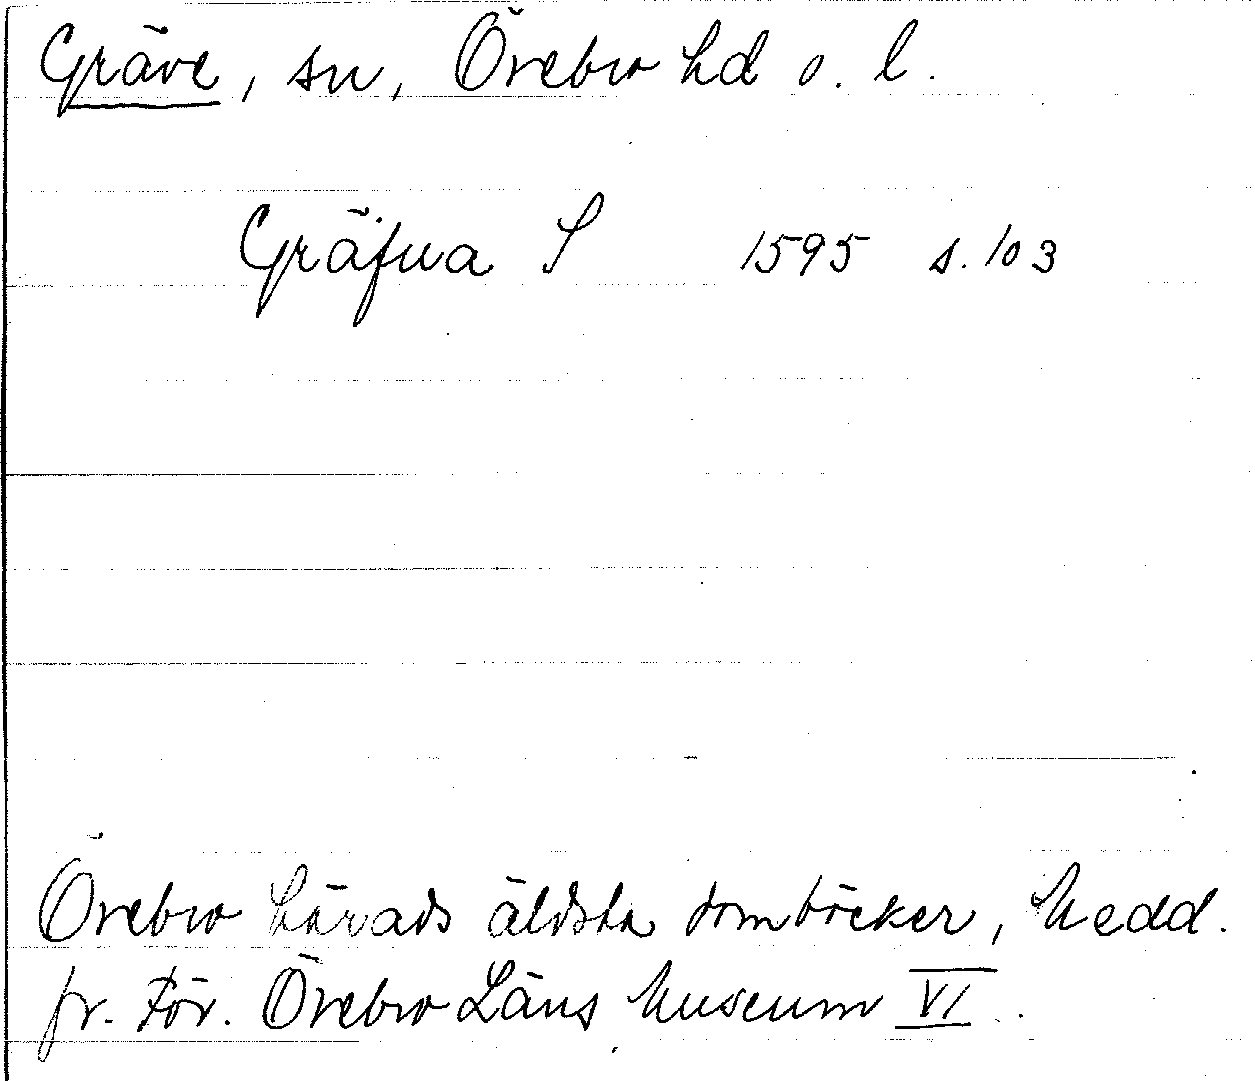 Gräve, sn, Örebro hd o. l.
Gräfwa S 1595 s. 103
Örebro härads äldsta domböcker, Medd.
fr. För. Örebro Läns Museum VI.